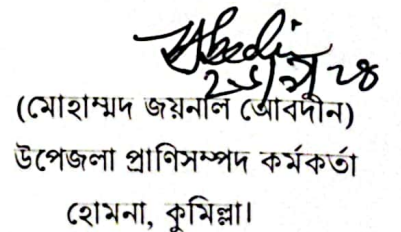 (মোহাম্মদ জয়নাল আবেদীন)
উপেজলা প্রাণিসম্পদ কর্মকর্তা
হোমনা, কুমিল্লা।